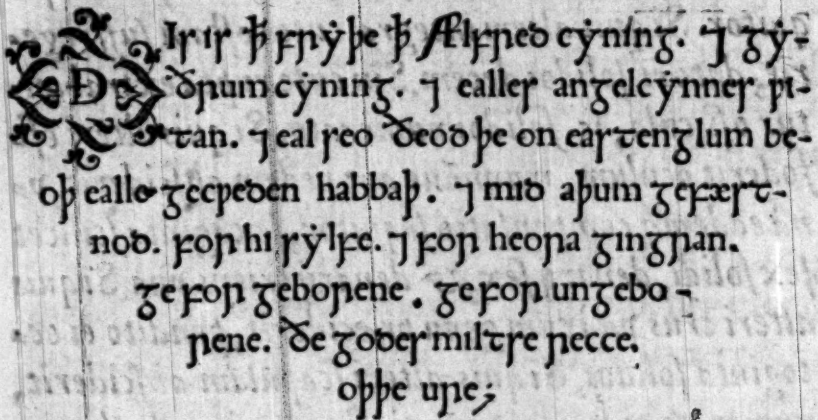 Ðis is þæt fryþe þæt Ælfred cẏning. ⁊ gẏ-
ðrum cẏning. ⁊ ealles angelcẏnnes ƿi-
tan. ⁊ eal seo ðeod þe on eastenglum be-
oþ ealle gecƿeden habbaþ. ⁊ mid aþum gefæst-
nod. for hi sẏlfe. ⁊ for heora gingran.
ge for geborene. ge for ungebo-
rene. ðe godes miltse recce.
oþþe ure;